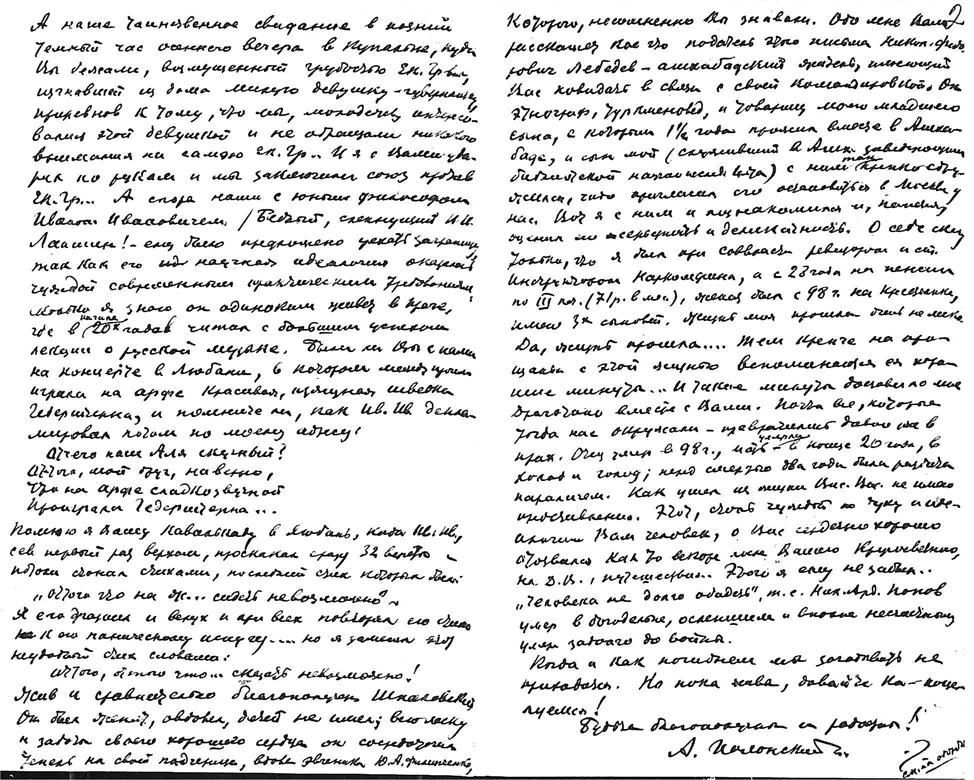 А наше таинственное свидание в поздний
темный час осеннего вечера в Купальне, куда
Вы бежали, возмущенный грубостью Ек. Гр-вны,
изгнавшей из дома милую девушку-гувернантку
приревнов к тому, что мы, молодежь, интересо-
вались этой девушкой и не обращали никакого
внимания на самою Ек. Гр.. И я с Вами уда-
рил по рукам и мы заключили союз против
Ек. Гр... А споры наши с юным философом
Иваном Ивановичем (Бедный, следующий И.И.
Лапшин! - ему было предложено уехать заграницу,
так как его научная идеология оказалась
чуждой современным требованиям.
я знаю он одиноким живет в Праге,
где в начале 20х годов читал с большим успехом
лекции о русской музыке. Были ли Вы с нами
на концерте в Любани, в котором между прочим
играла на арфе красивая, изящная шведка
Гедерштерна, и помните ли, как Ив. Ив. декла-
мировал потом по моему адресу:
Отчего наш Аля скучный?
Оттого, мой друг, наверно,
Что на арфе сладкозвучной
Проиграла Гедерштерна...
Помню я Вашу Кавалькаду в Любань, когда Ив. Ив.,
сев первый раз верхом, проскакал сразу 32 версты -
потом стихами, последний стих которых был:
„оттого что на ж... сидеть невозможно"
Я его дразнил и вслух и при всех повторял его стихи
к его паническому испугу.... но я заменил этот
неудобный стих словами:
Оттого, оттого что.... сказать невозможно!
Жив и сравнительно благополучен Шпаковский
Он был женат, овдовел, детей не имел; всю ласку
и заботы своего хорошего сердца он сосредоточил
теперь на своей падчерице, вдове Ю.А. Филипченко,
2
Которого, несомненно Вы знавали. Обо мне Вам
расскажет кое что податель этого письма Никол. Федо-
рович Лебедев - ашхабадский житель, имеющий
Вас повидать в связи с своей командировкой. Он
этнограф, туркменовед, и товарищ моего младшего
сына, с которым 1½ года прожил вместе в Ашха-
баде, и сын мой (служивший в Ашх. заведующим
библиотекой) с ним так крепко сдру-
жился, что пригласил его остановиться в Москве у
нас. Вот я с ним и познакомился и, потому
оценил его серьезность и деликатность. О себе скажу
только, что я был при соввласти ревизором и ст.
инструктором Наркомфина, а с 28 года на пенсии
по III кат. (71 р. в мес.), женат был с 98 г. на Кресп,
имею 3х сыновей. Жизнь моя прошла
Да, жизнь прошла.... Тем крепче на про-
щанье с этой жизнью вспоминаются ея хоро-
шие минуты... И такие минуты доставило мне
Вами. Почти все, которые
тогда нас окружали - превратились давно уж в
прах. Отец умер в 98 г., мать умерла - в конце 20 года, в
холод и голод; перед смертью два года была разбита
параличем. Как ушел из жизни Вас. Вас. не имею
представления. Этот, столь чуждый по духу и иде-
алогии Вам человек, о Вас сердечно хорошо
отзывался как то вскоре после Вашего Кругосветного,
на Д.В., путешествия.. Этого я ему не забыл..
„Человека не долго обидеть", т.е. Ник. Ард. Попов
умер в богадельне, ослепшим и вполне несчастным
умер задолго до войны.
Когда и как погибнем мы загадывать не
приходится. Но пока живы, давайте на-поце-
луемся!
Будьте благополучны и работайте!
А. Полонский